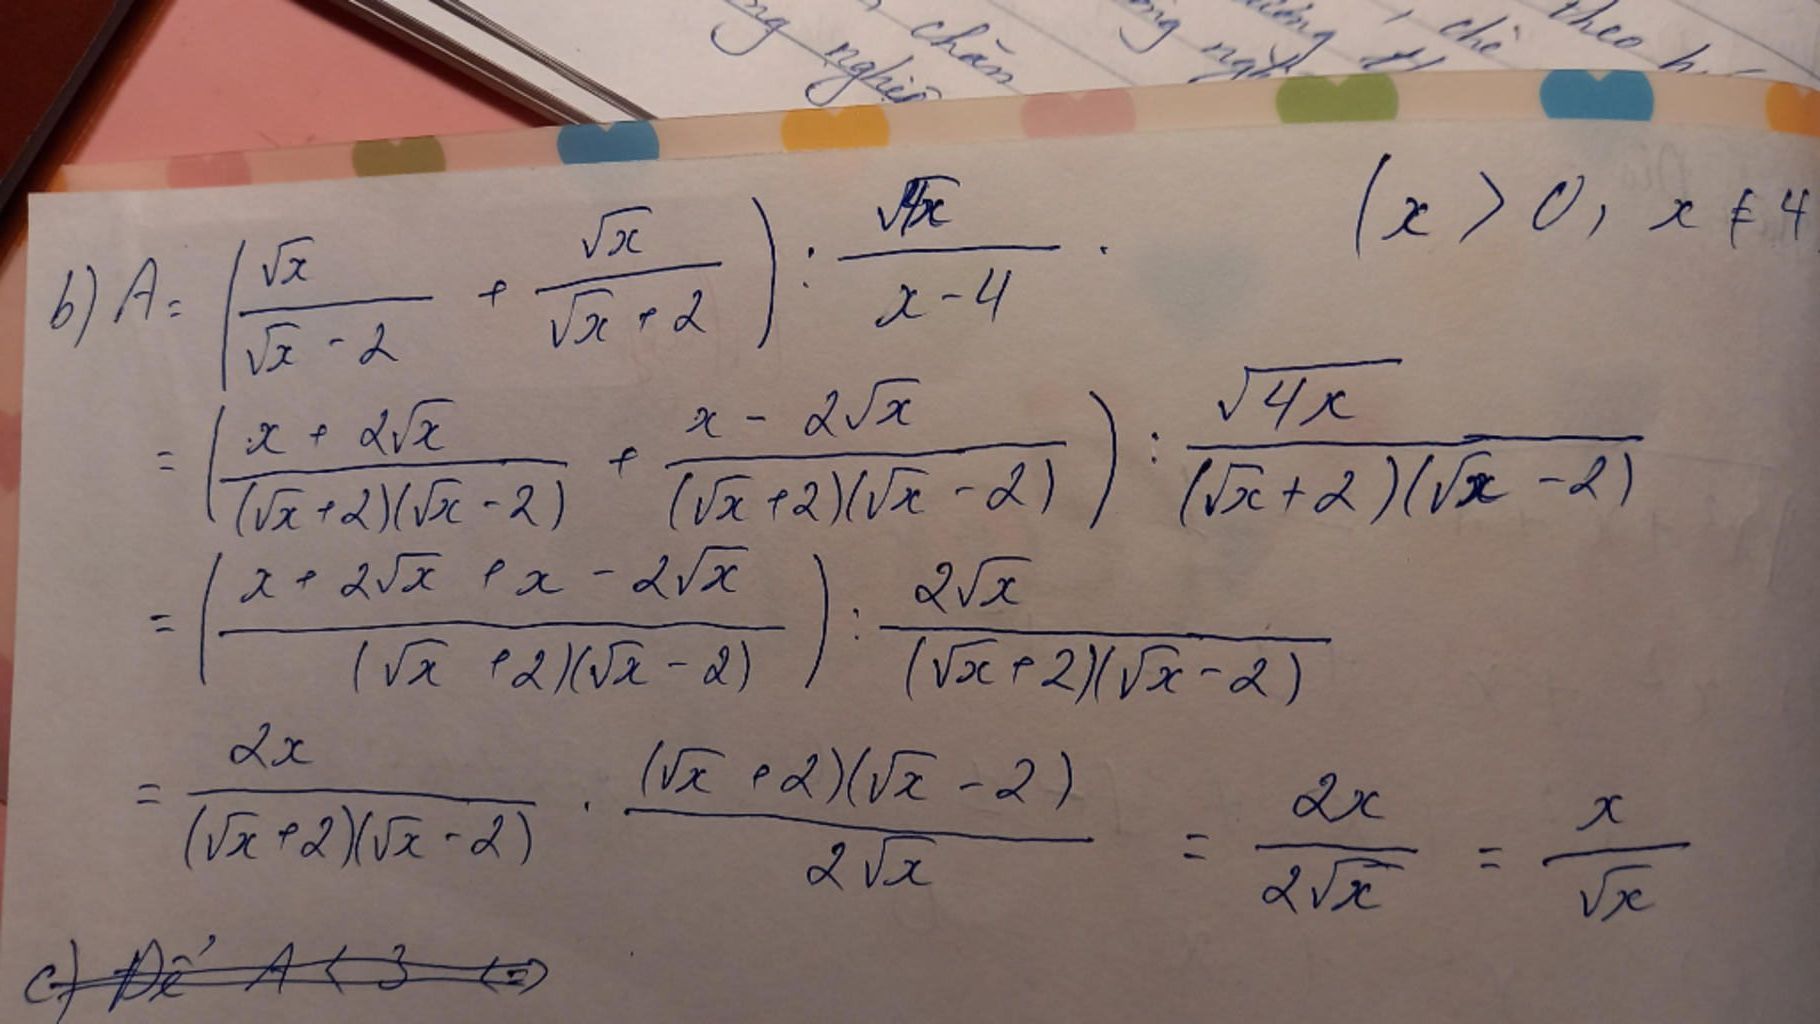 ng nghiệ
chăn
ông ngh
chè
theo h
b) A = (√x / (√x - 2) + √x / (√x + 2)) : √4x / (x - 4) . (x > 0, x ≠ 4
= ((x + 2√x) / ((√x + 2)(√x - 2)) + (x - 2√x) / ((√x + 2)(√x - 2))) : √4x / ((√x + 2)(√x - 2))
= ((x + 2√x + x - 2√x) / ((√x + 2)(√x - 2))) : 2√x / ((√x + 2)(√x - 2))
= 2x / ((√x + 2)(√x - 2)) . ((√x + 2)(√x - 2)) / 2√x = 2x / 2√x = x / √x
c) Để A < 3 <=>